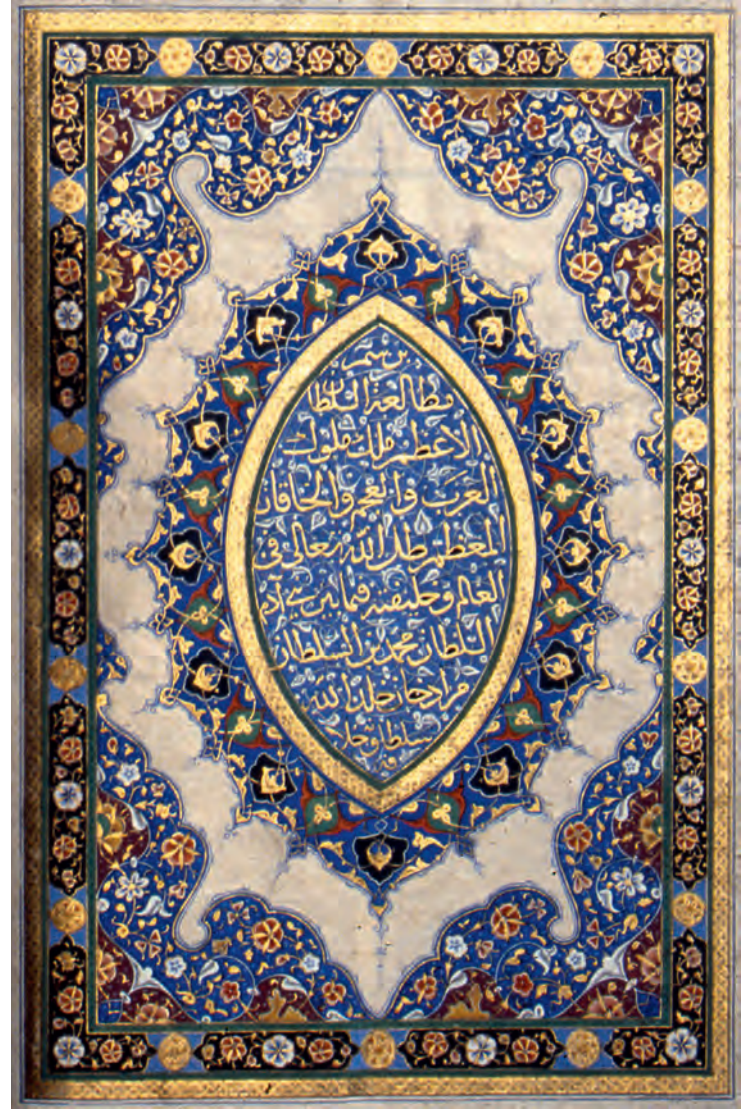 برسم
مطالعة السلطان
الاعظم ملك ملوك
العرب والعجم والخاقان
المعظم ظل الله تعالى فى
العالم وخليفته فيما بين بنى آدم
السلطان محمد بن السلطان
مراد خان خلد الله
سلطانه وخلافته